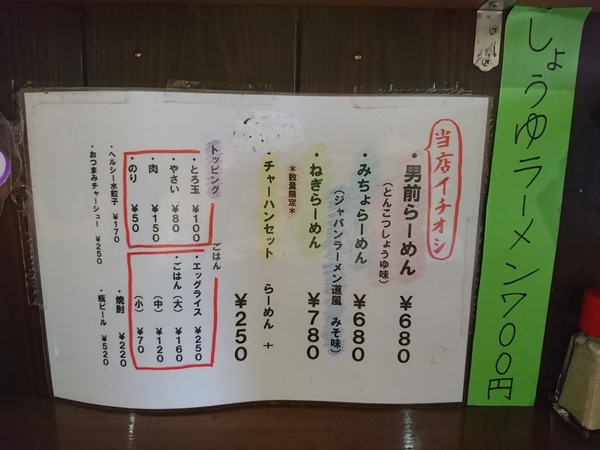 しょうゆラーメン700円
当店イチオシ
・男前らーめん ¥680
(とんこつしょうゆ味)
・みちょらーめん ¥680
(ジャパンラーメン道風 みそ味)
・ねぎらーめん ¥780
*数量限定*
・チャーハンセット らーめん + ¥250
トッピング
・とろ玉 ¥100
・やさい ¥80
・肉 ¥150
・のり ¥50
ごはん
・エッグライス ¥250
・ごはん (大) ¥160
(中) ¥120
(小) ¥70
・ヘルシー水餃子 ¥170
・おつまみチャーシュー ¥250
・焼酎 ¥220
・瓶ビール ¥520